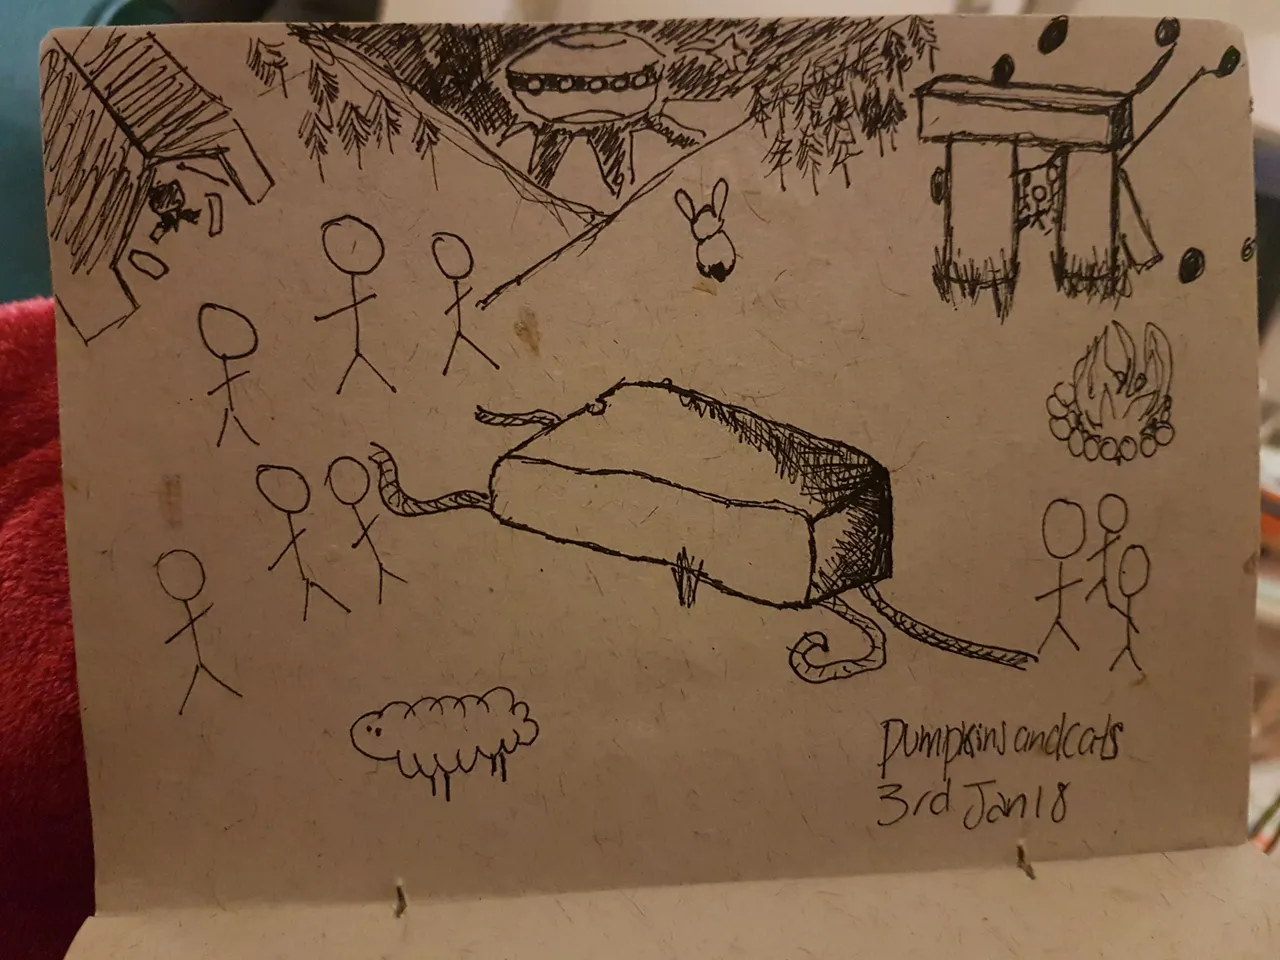 Pumpkinsandcats
3rd Jan 18